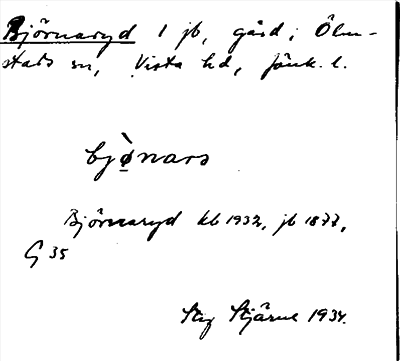 Björnaryd 1 jb, gård i Ölm-
stads sn, Vista hd, Jönk. l.
bjø̀nars
Björnaryd kb 1932, jb 1877,
G 35
Stig Stjärne 1934.